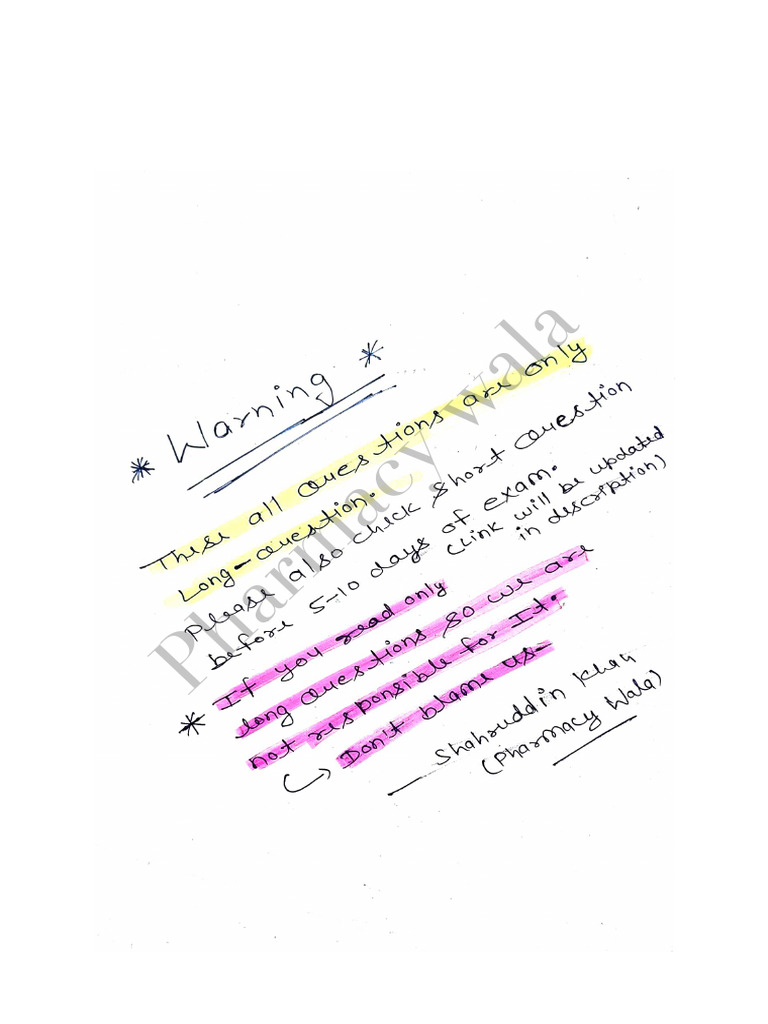 * Warning *
These all Questions are only
Long-Question.
Please also check short Question
before 5-10 days of exam.
(Link will be updated
in description)
* If you read only
long Questions so we are
not responsible for It.
↳ Don't blame us-
— Shahruddin Khan
(Pharmacy Wala)
Pharmacy wala